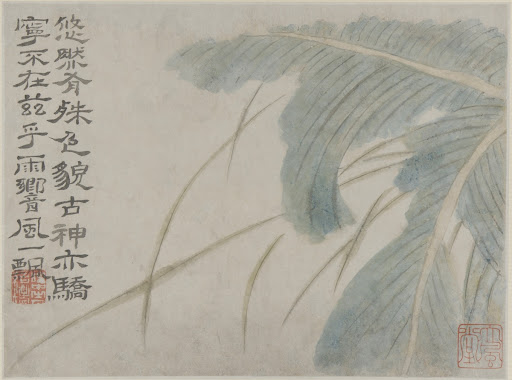 悠然有殊色貌古神亦驕
寧不在茲乎雨響風一飄
大風堂